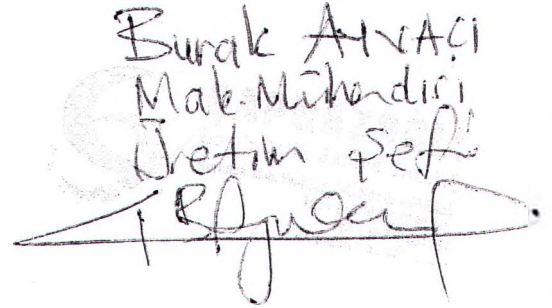 Burak AYVACI
Mak. Mühendisi
Üretim Şefi